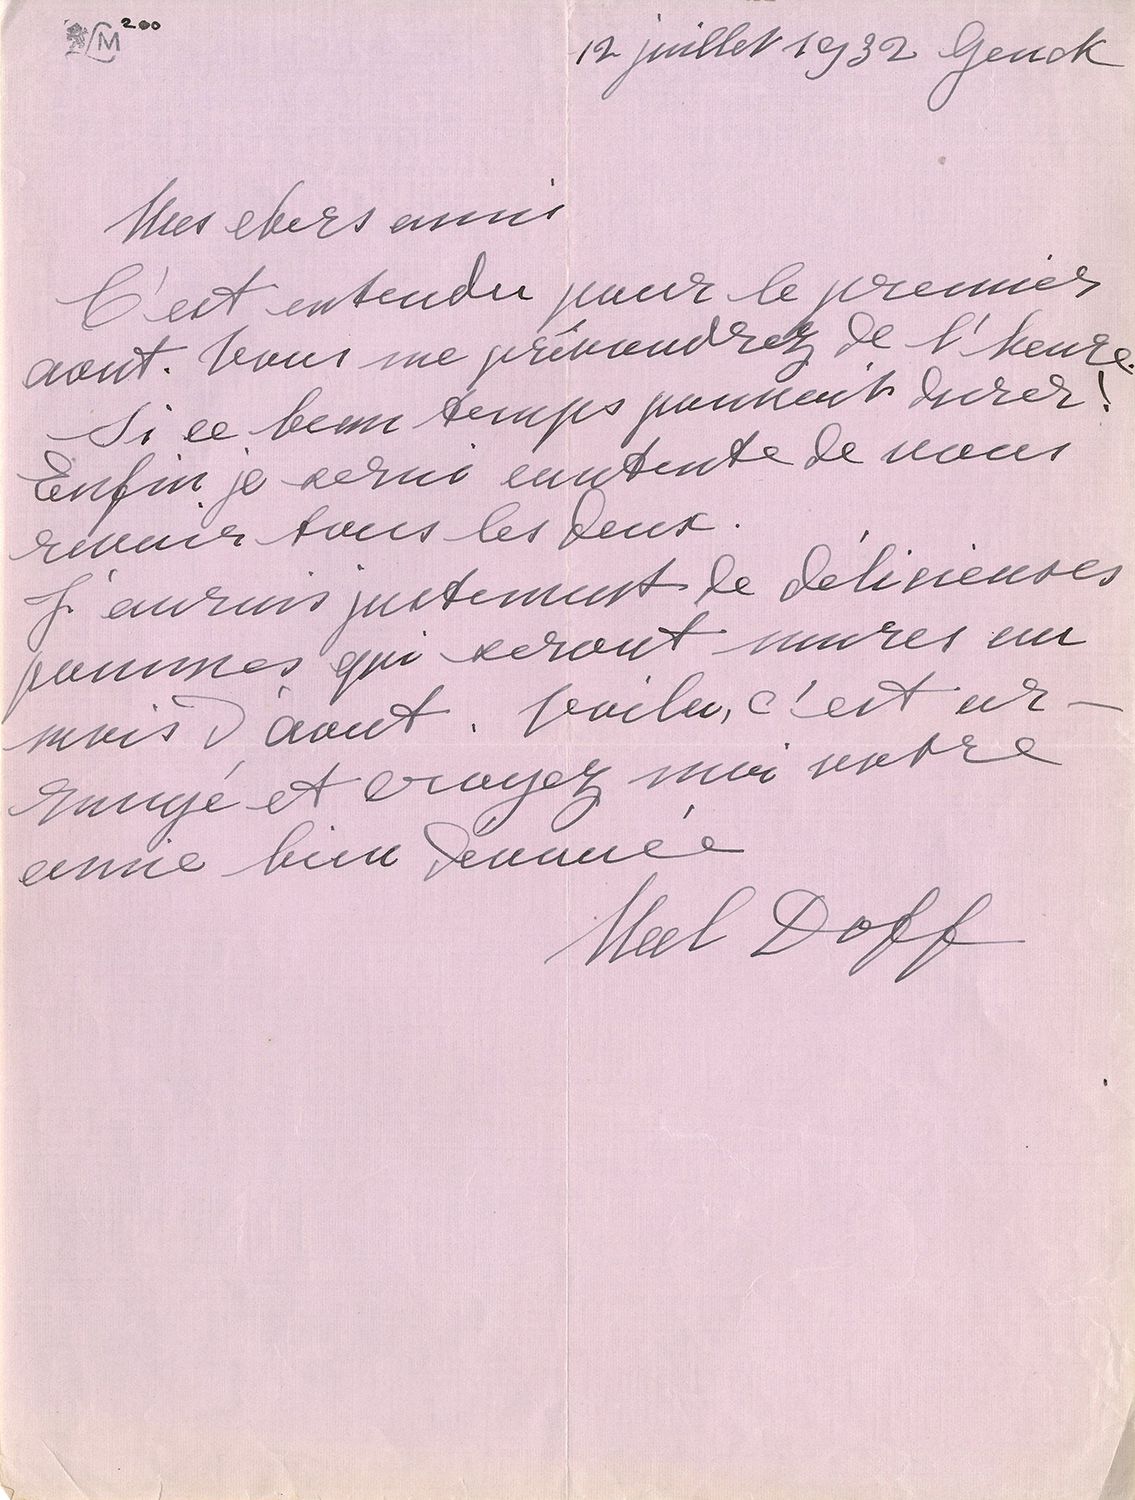 LM 200
12 juillet 1932 Genck
Mes chers amis
C'est entendu pour le premier
aout. Vous me préviendrez de l'heure.
Si ce beau temps pouvait durer!
Enfin je serai contente de vous
revoir tous les deux.
J'aurais justement de délicieuses
pommes qui seront mures au
mois d'aout. Voila, c'est ar-
rangé et croyez moi votre
amie bien dévouée
Neel Doff